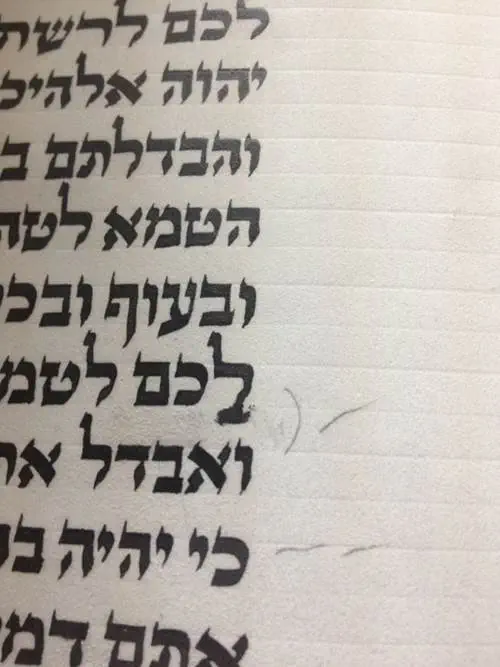 לכם לרשת
יהוה אלהיכ
והבדלתם ב
הטמא לטה
ובעוף ובכ
לכם לטמ
ואבדל את
כי יהיה ב
אתם דמ